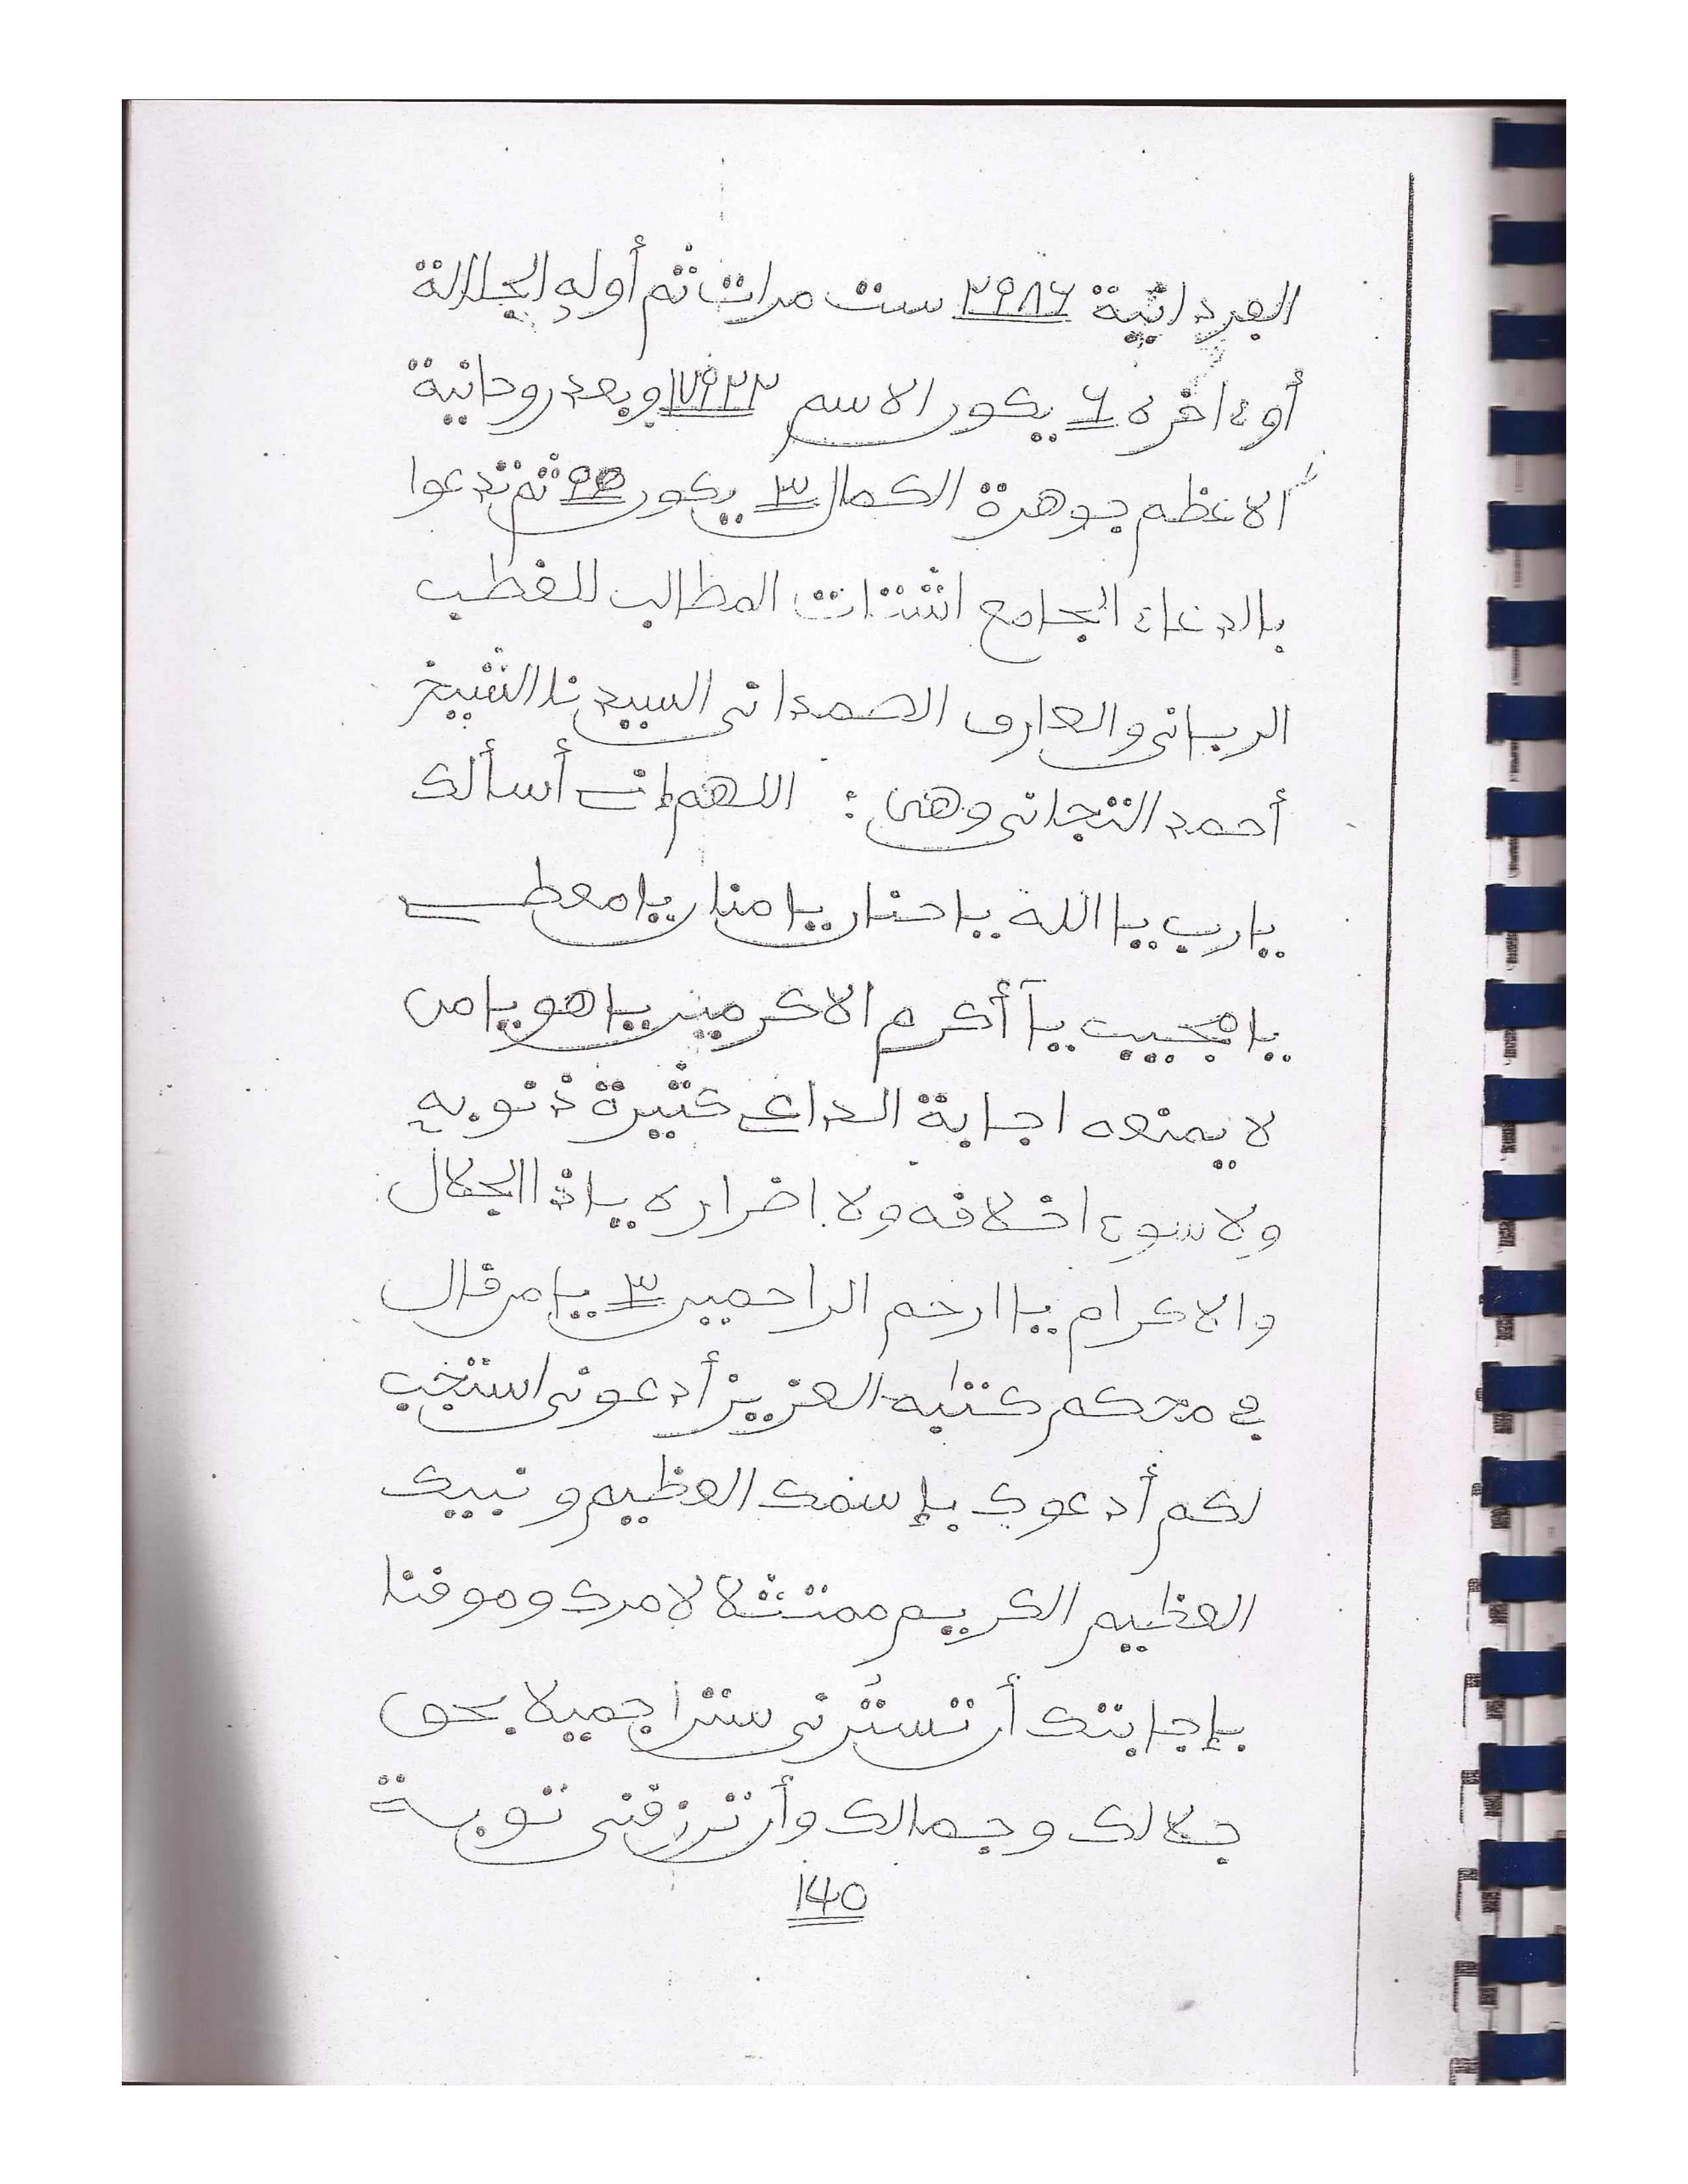 الفردانية ٢٩٨٦ ست مرات ثم أوله الجلالة
أوءاخره ٦ يكور الاسم ١٧٩٢٢ وبعد روحانية
الاعظم جوهرة الكمال ٣ يكور ثم تدعوا
بالدعاء الجامع اشتات المطالب للفطب
الرباني والعارف الصمداني السيدنا الشيخ
أحمد التجاني وهي : اللهم إني أسألك
يارب يا الله يا حنان يا منان يا معطي
يا مجيب يآ أكرم الاكرمين يا هو يا من
لا يمنعه اجابة الداعي كثيرة ذنوبه
ولا سوء اخلافه ولا اضراره ياذا الجلال
والاكرام يا ارحم الراحمين ٣ يا من فال
في محكم كتابه العزيز أدعوني استجب
لكم أدعوك بإسمك العظيم ونبيك
العظيم الكريم ممتثلا لامرك وموفنا
بإجابتك أن تسترني سترا جميلا بحق
جلالك وجمالك وأن ترزفني توبة
140